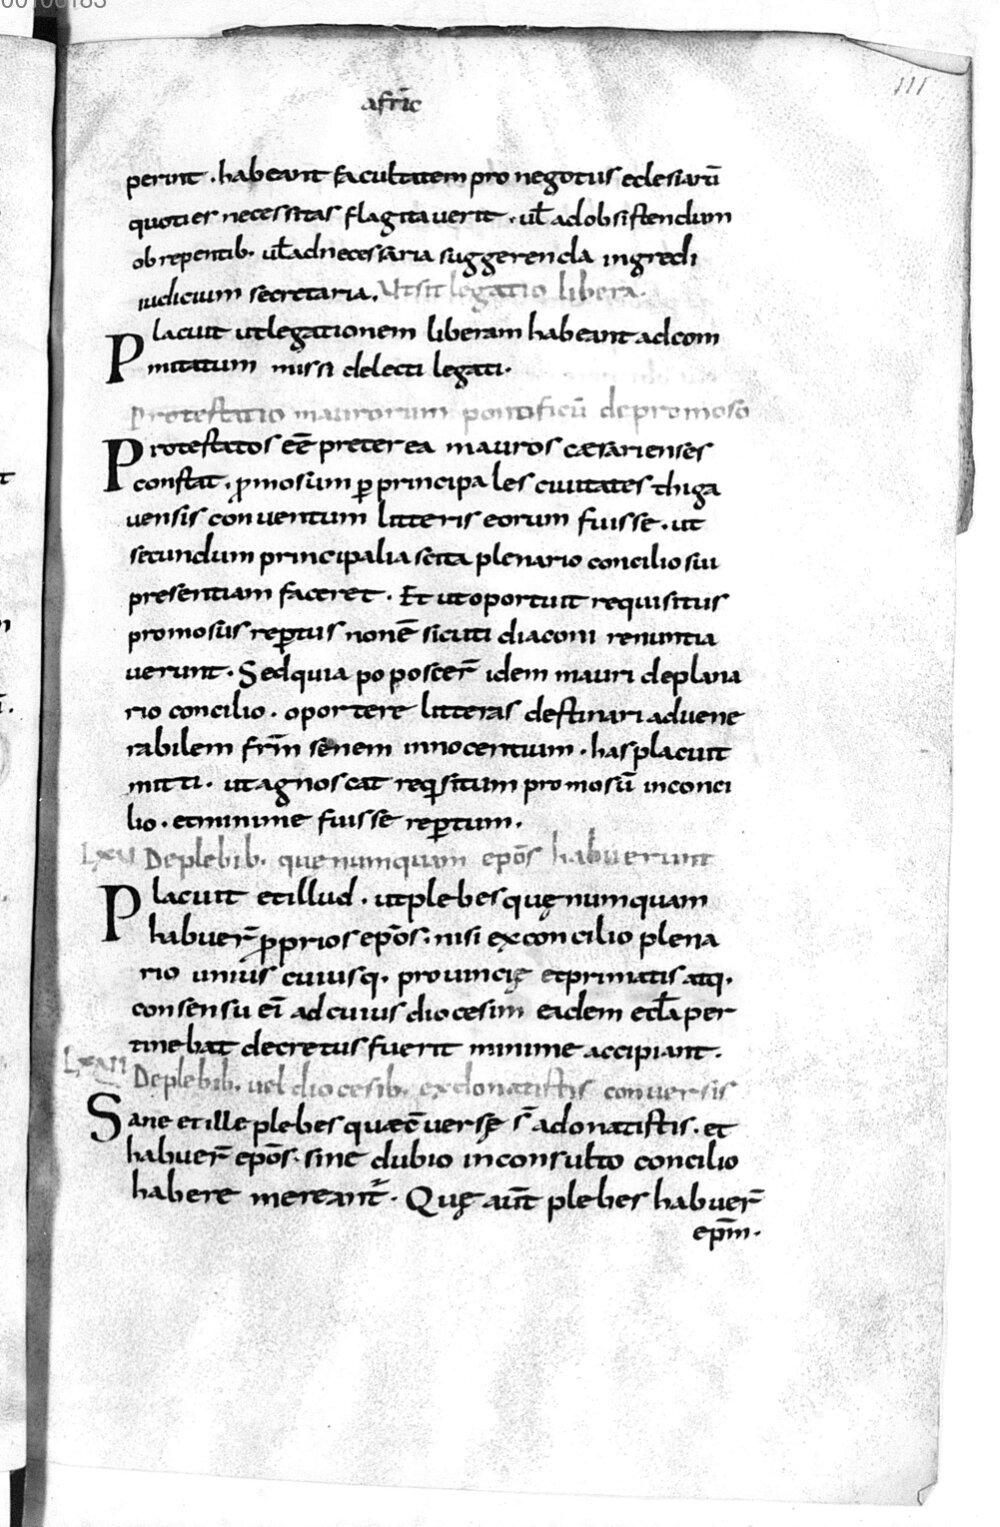 00100183
111
afric̄
perint · habeant facultatem pro negotiis eclesiarū
quoties necessitas flagitaverit · ul̄ ad obsistendum
obrepentib· ul̄ ad necessaria suggerenda ingredi
iudicium secretaria. Ut sit legatio libera.
Placuit ut legationem liberam habeant ad com
mitatum missi delecti legati·
Protestatio maurorum pontificū de promoso
Protestatos eē preterea mauros cæsarienses
constat · ꝓmosum ꝑ principales civitates thiga
uensis conventum litteris eorum fuisse · ut
secundum principalia scita plenario concilio sui
presentiam faceret · Et ut oportuit requisitus
promosus reꝑtus non ē sicuti diaconi renuntia
uerunt · Sed quia poposcer̄ idem mauri de plana
rio concilio · oportere litteras destinari ad uene
rabilem fr̄m senem innocentium · has placuit
mitti · ut agnoscat reqisitum promosū in conci
lio · et minime fuisse reꝑtum ·
LXVI De plebib· que numquam epōs habuerunt
Placuit et illud · ut plebes quę numquam
habuer̄ ꝓprios epōs · nisi ex concilio plena
rio unius cuiusq· prouincię et primatis atq·
consensu eī ad cuius diocesim eadem eccl̄a per
tinebat decretus fuerit minime accipiant ·
De plebib· uel diocesib· ex donatistis conuersis
Sane et ille plebes quæ c̄uersę s̄ a donatistis · et
habuer̄ epōs · sine dubio inconsulto concilio
habere mereant̄ · Quę aūt plebes habuer̄
epm̄ ·